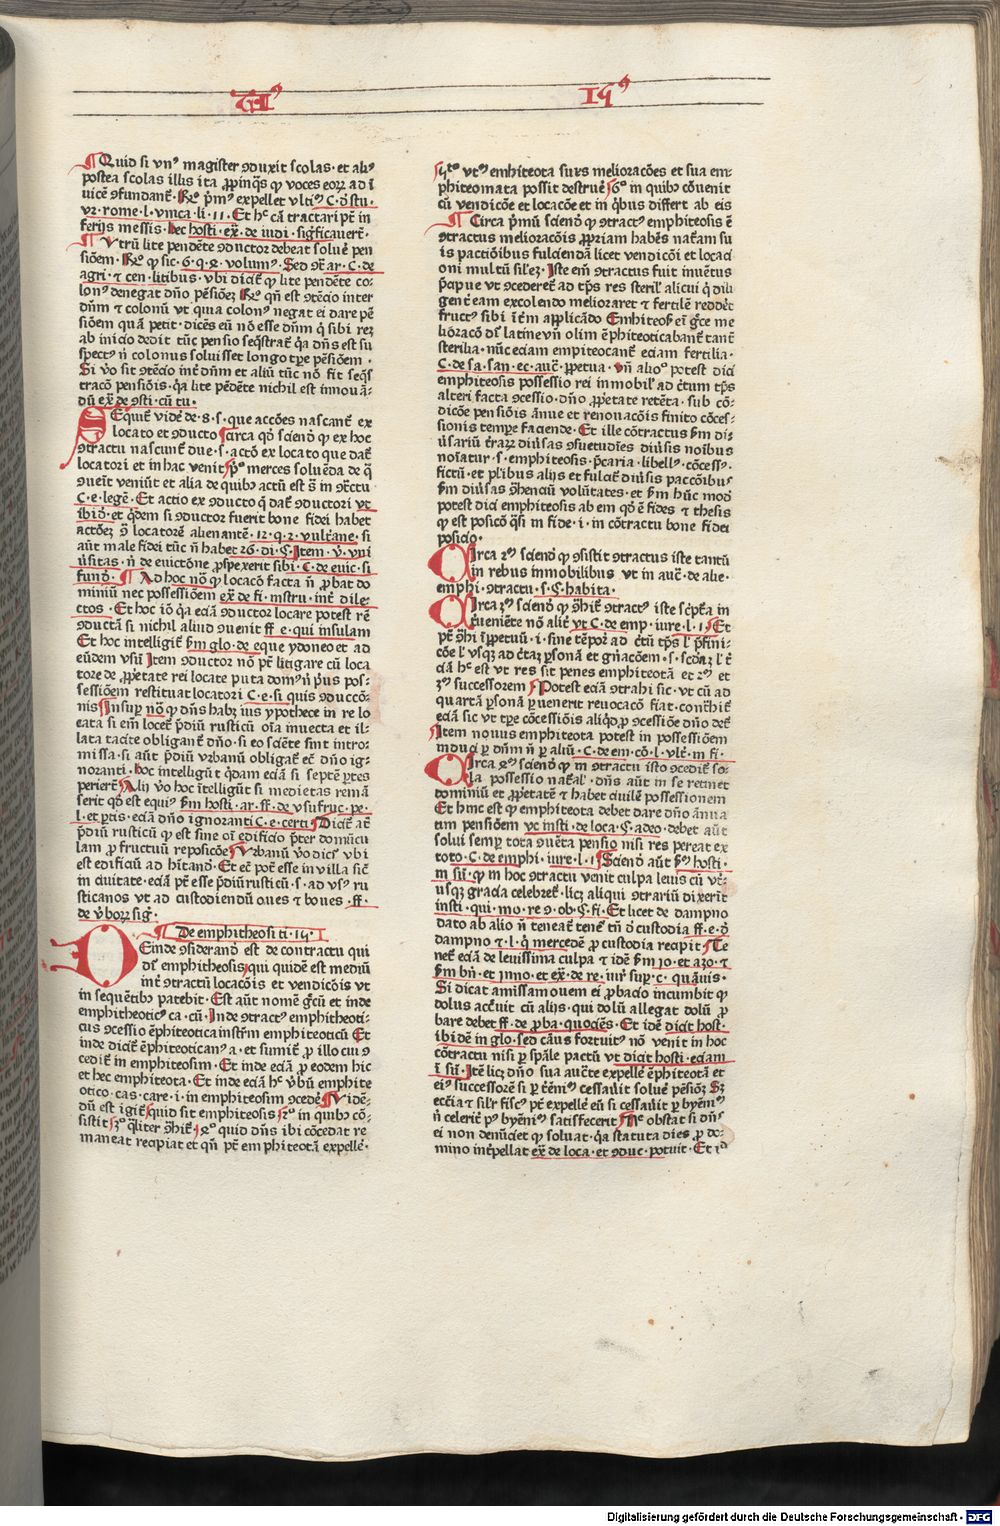 Quid si vnꝰ magister ꝯduxit scolas · et aliꝰ
postea scolas illis ita ꝓpinq̄s ꝙ voces eoꝝ ad ī
uicē ꝯfundant̄ · Rͦ · p̄mꝰ expellet vltīꝰ C · ō stu ·
vr · rome · l · vnica · li · 11 · Et hͨ cā tractari pt̄ in
ferijs messis · hec hosti · ex̄ · de iudi · sigficauert̄ ·
Vtrū lite pendēte ꝯductor debeat soluē pen
siōem · Rͦ ꝙ sic · 6 · q · 2 · volumꝰ · Sed ꝯͣ ar · C · de
agri · ⁊ cen · litibus · vbi dicit̄ ꝙ lite pendēte co-
lonꝰ denegat dn̄o pēsiōeȝ Rͦ qn̄ est ꝯtēcio inter
dn̄m ⁊ colonū vt qua colonꝰ negat ei dare pē
siōem quā petit · dicēs eū nō esse dn̄m q̇ sibi reȝ
ab inicio dedit tūc pensio seq̄strat̄ q̇a dn̄s est su
spectꝰ n̄ colonus soluisset longo tꝑe pēsiōem ·
Si vo sit ꝯtēcio int̄ dn̄m et aliū tūc nō fit seq̄s
tracō pensiōis · q̇a lite pēdēte nichil est innouā-
dū ex̄ · de ꝯsti · cū tu ·
SEquit̄ vidē de · 8 · s · que accōes nascant̄ ex
locato et ꝯducto Circa qd̄ sciend̄ ꝙ ex hoc
ꝯtractu nascunt̄ due · s · actō ex locato que dat̄
locatori et in hac venit pͦ merces soluēda de q̄
ꝯuēit veniūt et alia de quibꝰ actū est s̄ in ꝯͣctu
C · e · legē · Et actio ex ꝯducto q̄ dat̄ ꝯductori vt
ibid̄ · et q̇dem si ꝯductor fuerit bone fidei habet
actōeȝ ꝯͣ locatorē alienantē · 12 · q · 2 · vulteranē · si
aūt male fidei tūc n̄ habet 26 · di · C · Item · v̄ · vni
ūsitas · n̄ de euictōne ꝓspexerit sibi · C · de euic · si
fund̄ · Ad hoc nō ꝙ locacō facta n̄ ꝓbat do
miniū nec possessiōem ex̄ · de fi · instru · int̄ dile-
ctos · Et hoc iō q̇a eciā ꝯductor locare potest rē
ꝯductā si nichil aliud ꝯuenit ff · e · qui insulam
Et hoc intelligit̄ s̄m glo · de eque ydoneo et ad
eūdem vsū Item ꝯductor nō pt̄ litigare cū loca
tore de ꝓpͥetate rei locate puta domꝰ n̄ pͥus pos-
sessiōem restituat locatori C · e · si quis ꝯduccō-
nis Insuꝑ nō ꝙ dn̄s habȝ ius ypothece in re lo
cata si em̄ locet̄ p̄diū rusticū oīa inuecta et il-
lata tacite obligant̄ dn̄o · si eo sciēte sint intro-
missa · si aūt p̄diū vrbanū obligat̄ ec̄ dn̄o ig-
noranti · hoc intelligūt q̇dam eciā si septē ꝑtes
perierit̄ Alij vo hoc īntelligūt si medietas remā
serit qd̄ est equiꝰ s̄m hosti · ar · ff · de vsufruc · pe ·
l · et ꝑtis · eciā dn̄o ignoranti C · e · certi Dicit̄ aūt
p̄diū rusticū ꝙ est sine oī edificio p̄ter domūcu
lam ꝓ fructuū reposicōe Vrbanū vō dicit̄ vbi
est edificiū ad hītand̄ · Et ec̄ pot̄ esse in villa sic̄
in ciuitate · eciā pt̄ esse p̄diū rusticū · s · ad vsꝰ ru
sticanos vt ad custodiendū oues ⁊ boues · ff ·
de v̄boꝝ siḡ ·
De emphitheosi ti · 15 · 1
DEinde ꝯsiderand̄ est de contractu qui
dr̄ emphitheosis qui quidē est mediū
int̄ ꝯtractū locacōis et vendicōis vt
in sequētibꝰ patebit · Est aūt nomē gͥcū et inde
emphitheoticꝰ ca · cū · Inde ꝯtractꝰ emphitheoti-
cus ꝯcessio ēphiteotica instr̄m emphiteoticū Et
inde dicit̄ ēphiteoticanꝰ a · et sumit̄ ꝓ illo cui ꝯ
cedit̄ in emphiteosim · Et inde eciā ꝓ eodem hic
et hec emphiteota · Et inde eciā hͨ v̄bū emphite
otico · cas · care · i · in emphiteosim ꝯcedē Vidē-
dū est igit̄ quid sit emphiteosis 2ͦ in quibꝰ cō-
sistit 3ͦ q̄liter ꝯͣhit̄ 4ͦ quid dn̄s ibi cōcedat re
maneat recipiat et qn̄ pt̄ emphiteotā expellē ·
5ͦ vtꝝ emhiteota suas melioracōes et sua em-
phiteomata possit destruē 6ͦ in quibꝰ cōuenit
cū vendicōe et locacōe et in q̇bus differt ab eis
Circa p̄mū sciend̄ ꝙ ꝯtractꝰ emphiteosis ē
ꝯtractus melioracōis ꝓpriam habēs nat̄am su
is pactiōibus fulciendā licet vendicōi et locaci
oni multū sil̄eȝ · Iste em̄ ꝯtractus fuit inuētus
p̄cipue vt ꝯcederet̄ ad tp̄s res sterilꝭ alicui q̇ dili
gent̄ eam excolendo melioraret ⁊ fertilē reddēt
fructꝰ sibi it̄m applicādo Emhiteosꝭ ei̇ gͥce me
lioracō dr̄ latine vn̄ olim ēphiteoticabant̄ tant̄
sterilia · nūc eciam empiteocant̄ eciam fertilia ·
C · de sa · san · ec · auc̄ · ꝑpetua · Vn̄ alioꝰ potest dici
emphiteosis possessio rei inmobilꝭ ad c̄tum tp̄s
alteri facta ꝯcessio · dn̄o ꝓpͥetate retēta · sub cō-
dicōe pensiōis ānue et renouacōis finito cōces-
sionis tempꝛe faciende · Et ille cōtractus s̄m di-
ūsariū t̄rarꝝ diūsas ꝯsuetudīes diūsis noībus
noīatur · s · emphiteosis · p̄caria · libellꝰ · cōcessꝰ ·
fictū · et pl̄ibus alijs et fulcit̄ diūsis paccōibuꝰ
s̄m diūsas ꝯͣhenciū volūtates · et s̄m hūc modū
potest dici emphiteosis ab em qd̄ ē fides ⁊ thesis
ꝙ est posicō q̄si in fide · i · in cōtractu bone fidei
posicio ·
CIrca 2ͫ sciend̄ ꝙ ꝯsistit ꝯtractus iste tantū
in rebus inmobilibus vt in auc̄ · de alie ·
emphi · ꝯtractu · s · C · habita ·
CIrca 3ͫ sciend̄ ꝙ ꝯͣhit̄ ꝯtractꝰ iste sc̄pͭa in
ꝭueniēte nō alit̄ vt C · de emp · iure · l · 1 Et
pt̄ ꝯͣhi ī ꝑpetuū · i · sine tēpore ad c̄tū tp̄s l̓ p̄fini-
cōe l̓ vsqȝ ad c̄taȝ ꝑsonā et gn̄acōem · s · scdaȝ l̓ t̄
ciā hͨ est vt res sit penes emphiteotā et 2ͫ et
3ͫ successorem Potest eciā ꝯtrahi sic · vt cū ad
quartā ꝑsonā ꝑuenerit reuocacō fiat · contͣhit̄
eciā sic vt tꝑe cōcessiōis aliqd̄ ꝓ ꝯcessiōe dn̄o det̄
Item nouus emphiteota potest in possessiōem
induci ꝑ dn̄m n̄ ꝑ aliū · C · de em · cō · l · vlt̄ · in fi ·
CIrca 4ͫ sciend̄ ꝙ in ꝯtractu isto ꝯcedit̄ so-
la possessio nat̄al̓ · dn̄s aūt in se retinet
dominiū et ꝓpͥetatē ⁊ habet ciuilē possessionem
Et hinc est ꝙ emphiteota debet dare dn̄o ānua
tim pensiōem vt insti · de loca · C · adeo · debet aūt
solui semꝑ tota ꝯuēta pensio nisi res pereat ex
toto · C · de emphi · iure · l · 1 Sciend̄ aūt s̄m hosti ·
in sūͣ · ꝙ in hoc ꝯtractu venit culpa leuis cū vtͥ-
usqȝ gracia celebret̄ · licȝ aliqui ꝯtrariū dixerīt
insti · qui · mo · re · ꝯ · ob · C · fi · Et licet de dampno
dato ab alio n̄ teneat̄ tenet̄ tn̄ d̄ custodia ff · e · d̄
dampno ⁊ · l · q̇ mercedē ꝓ custodia recipit Te
net̄ eciā de leuissima culpa ⁊ idē s̄m Jo · et azo · ⁊
s̄m bn̄ · et inno · et ex̄ · de re · iur̄ · sup̱ · c · quāuis ·
Si dicat amissam ouem ei ꝓbacio incumbit ꝙ
dolus acc̄uit cū alijs · qui dolū allegat dolū ꝓ
bare debet ff · de ꝓba · quociēs · Et idē dicit host ·
ibidē in glo · sed cāus fortuitꝰ nō venit in hoc
cōtractu nisi ꝑ sp̄ale pactū vt dicit hosti · eciam
ī sūͣ · Itē licȝ dn̄o sua auc̄te expellē ēphiteotā et
eiꝰ successorē si ꝑ t̄ēmꝰ cessauit soluē pēsiōȝ Sȝ
eccīa ⁊ sil̄r fiscꝰ pt̄ expellē eū si cessauit ꝑ byēm̄
n̄ celerit̄ pꝰ byēnı̄ satisfecerit Nec obstat si dn̄s
ei non denūciet ꝙ soluat · q̇a statuta dies ꝓ do-
mino int̄pellat ex̄ de loca · et ꝯduc · potuit · Et iͩ
Digitalisierung gefördert durch die Deutsche Forschungsgemeinschaft - DFG